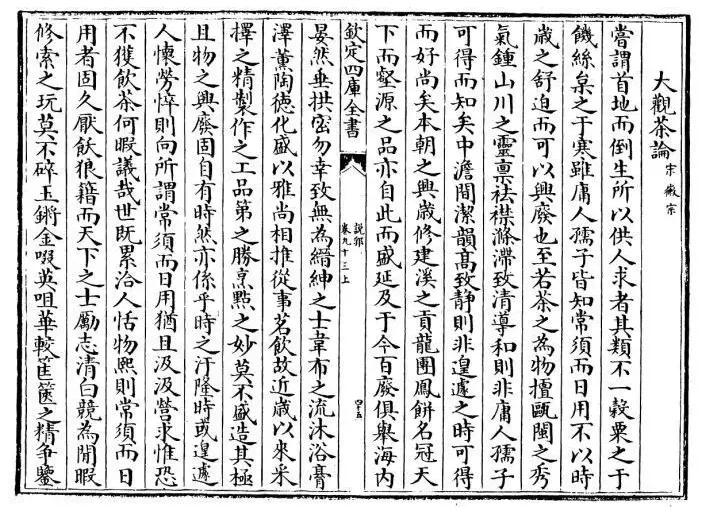 大觀茶論 宋徽宗
嘗謂首地而倒生所以供人求者其類不一穀粟之于
饑絲枲之于寒雖庸人孺子皆知常須而日用不以時
歳之舒迫而可以興廢也至若茶之為物擅甌閩之秀
氣鍾山川之靈禀袪襟滌滯致清導和則非庸人孺子
可得而知矣中澹閒潔韻高致静則非遑遽之時可得
而好尚矣本朝之興歳修建溪之貢龍團鳳餅名冠天
下而壑源之品亦自此而盛延及于今百廢俱舉海内
欽定四庫全書
説郛
卷九十三上
四十五
晏然垂拱宻勿幸致無為縉紳之士韋布之流沐浴膏
澤薫陶徳化盛以雅尚相推從事茗飲故近歳以來采
擇之精製作之工品第之勝烹點之妙莫不盛造其極
且物之興廢固自有時然亦係乎時之汙隆時或遑遽
人懷勞悴則向所謂常須而日用猶且汲汲營求惟恐
不獲飲茶何暇議哉世既累洽人恬物熙則常須而日
用者固久厭飫狼籍而天下之士厲志清白競為閒暇
修索之玩莫不碎玉鏘金啜英咀華較筐篋之精争鑒